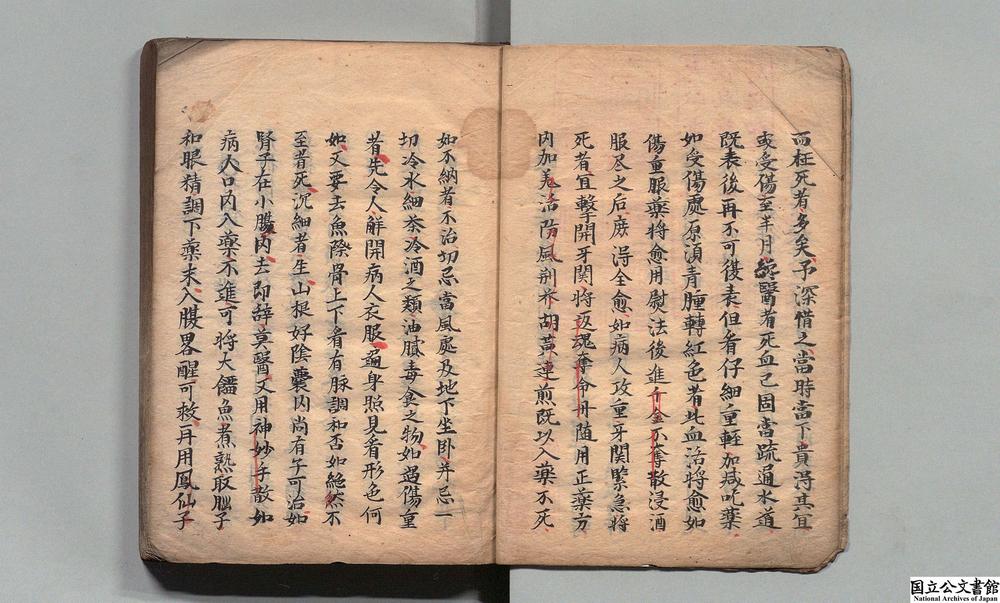 而枉死者多矣予深惜之當時當下貴得其宜
或受傷至半月𦆵醫者死血已固當疏通水道
既表後再不可復表但看仔細重輕加减吃藥
如受傷處原湏青腫轉紅色者此血活將愈如
傷重服藥將愈用慰法後進千金不奪散浸酒
服尽之后庻得全愈如病人攻重牙関緊急將
死者宜擊開牙関將返魂奪命丹随用正藥方
内加羌活防風荆芥胡黄連煎既以入藥不死
如不納者不治切忌當風處及地下坐卧并忌一
切冷水細茶冷酒之類油膩毒食之物如遇傷重
者先令人觧開病人衣服遍身照見看形色何
如又要去魚際骨上下看有脉調和否如絶然不
至者死沉細者生山根好陰囊内尚有子可治如
腎子在小腸内去即辞莫醫又用神妙手散如
病人口内入藥不進可將大魚煮熟取子
和眼精調下藥末入腹畧醒可救再用鳳仙子
国立公文書館
National Archives of Japan